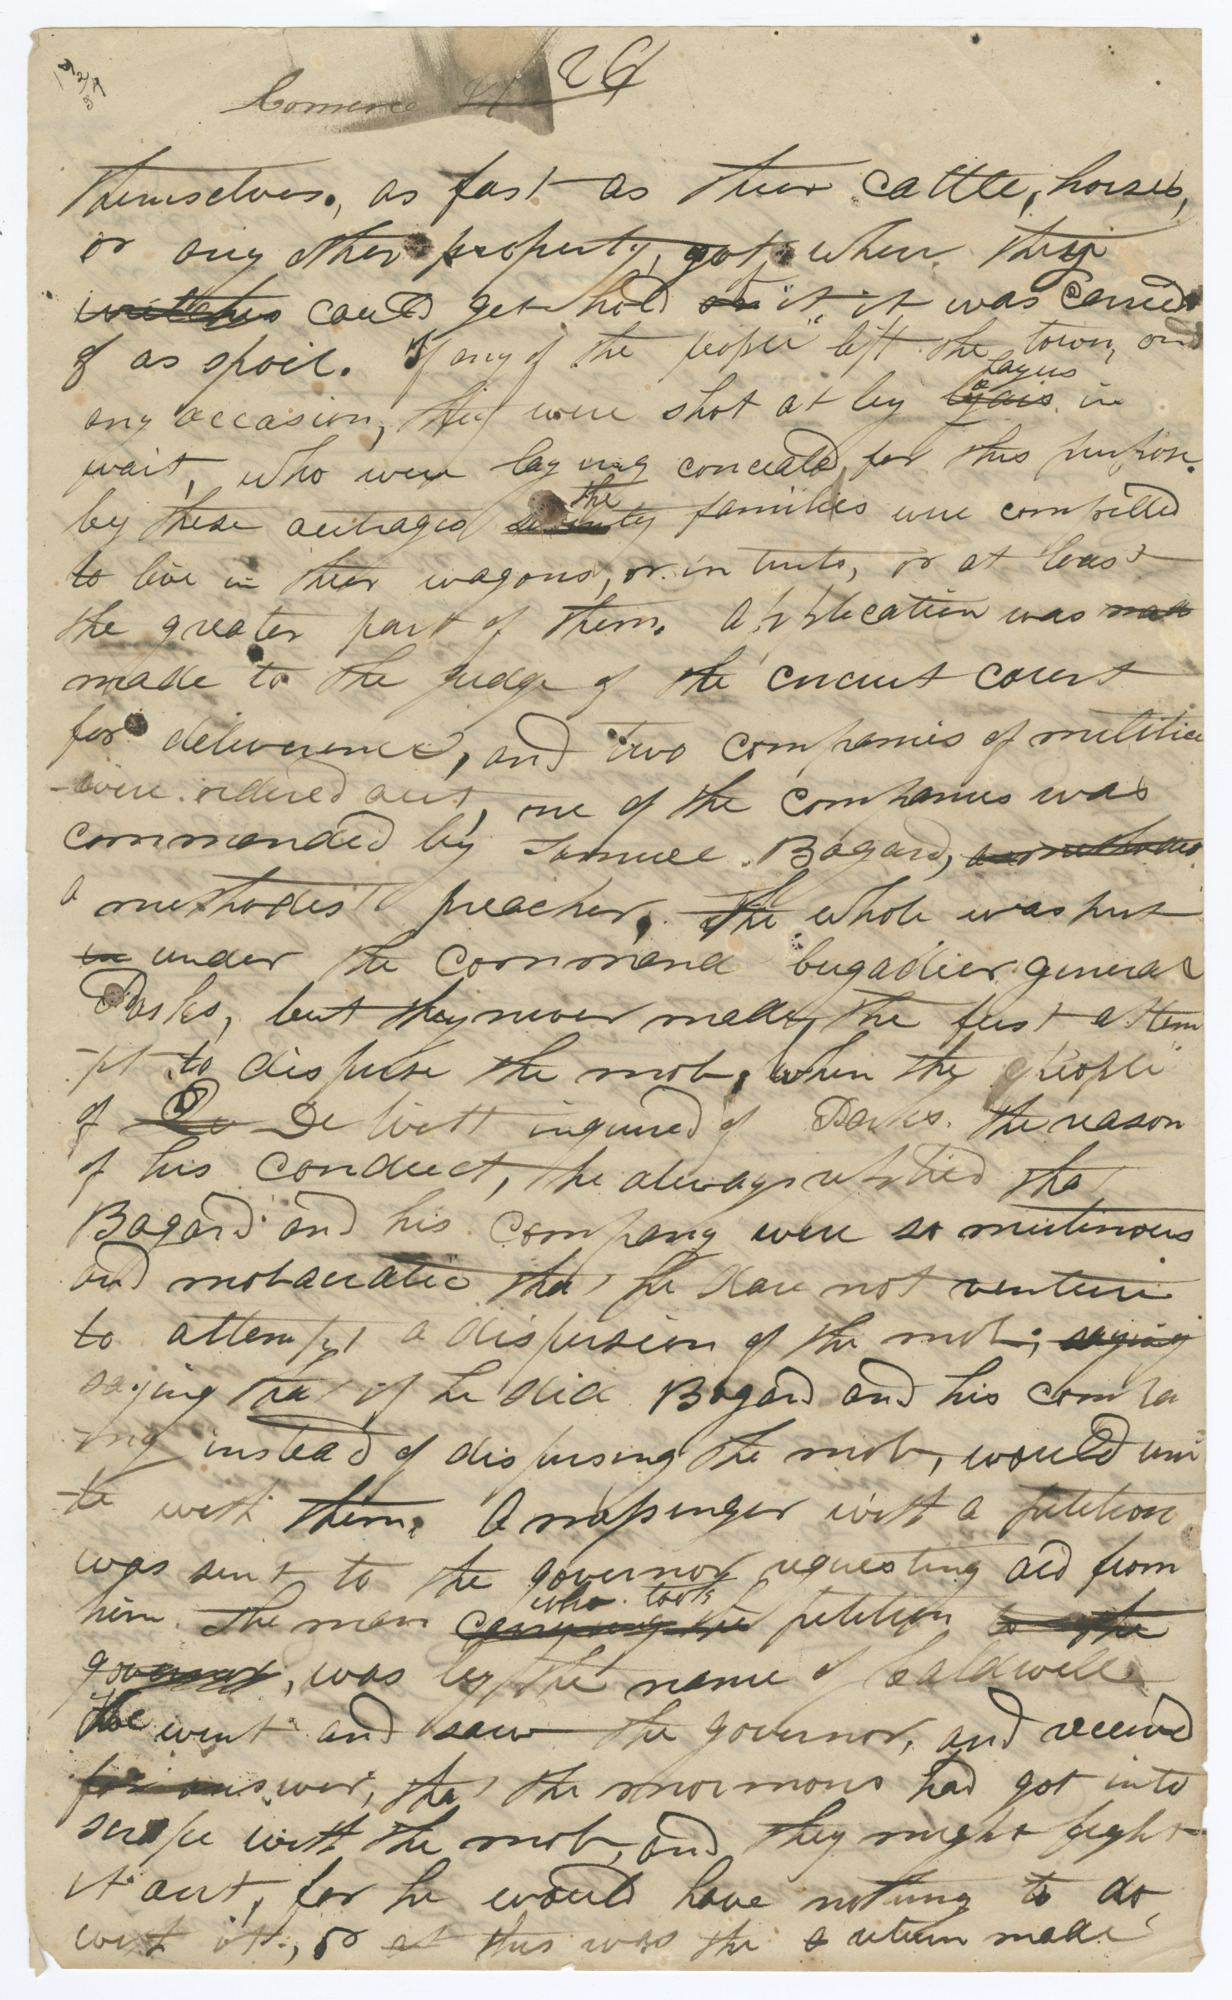 26
themselves, as fast as their cattle, horses,
or any other property, got where they
could get hold on it, it was carried
of as spoil. If any of the people left the town, on
any occasion, they were shot at by layers in
wait, who were laying conceald, for this purpose.
by these outrages the families were compelled
to live in their wagons, or in tents, or at least
the greater part of them. Application was mad
made to the judge of the circuit court
for deliverence, and two companies of militia
were ordered out, one of the companies was
commanded by Samuel Bogard, a methodist
a methodist preacher, the whole was put
in under the command brigadier general
Parks, but they never made, the first attem
pt to disperse the mob, when the people
of De De Witt inquired of Parks the reason
of his conduct, he always replied that
Bogard and his company were so mutinous
and mobacratic that he dare not venture
to attempt a dispersion of the mob; saying
saying that if he did Bogard and his compa
ny instead of dispersing the mob, would uni
te with them. A messenger with a petition
was sent to the governor requesting aid from
him. The man who took carrying the petition to the
governor, was by the name of Caldwell
He went and saw the governor, and received
for answer, that the mormons had got into
scrape with the mob, and they might fight
it out, for he would have nothing to do
with it, or at this was the a return made